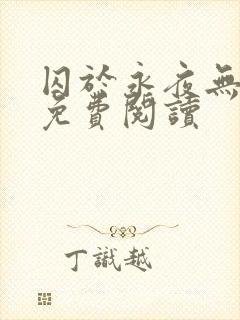 囚於永夜無
免費閱讀
丁識越